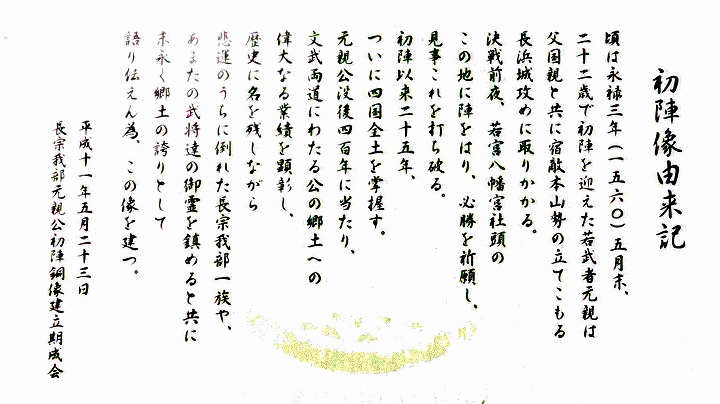 初陣像由来記
頃は永禄三年(一五六〇)五月末、
二十二歳で初陣を迎えた若武者元親は
父国親と共に宿敵本山勢の立てこもる
長浜城攻めに取りかかる。
決戦前夜、若宮八幡宮社頭の
この地に陣をはり、必勝を祈願し、
見事これを打ち破る。
初陣以来二十五年、
ついに四国全土を掌握す。
元親公没後四百年に当たり、
文武両道にわたる公の郷土への
偉大なる業績を顕彰し、
歴史に名を残しながら
悲運のうちに倒れた長宗我部一族や、
あまたの武将達の御霊を鎮めると共に
末永く郷土の誇りとして
語り伝えん為、この像を建つ。
平成十一年五月二十三日
長宗我部元親公初陣銅像建立期成会